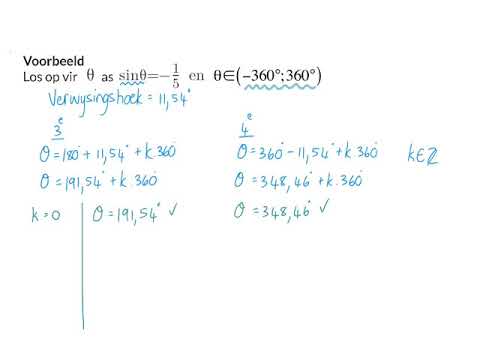 Voorbeeld
Los op vir θ as sinθ=-1/5 en θ∈(-360°;360°)
Verwysingshoek = 11,54°
3e 4e
θ = 180° + 11,54° + k.360° θ = 360° - 11,54° + k.360° k∈ℤ
θ = 191,54° + k.360° θ = 348,46° + k.360°
k = 0 θ = 191,54° ✓ θ = 348,46° ✓